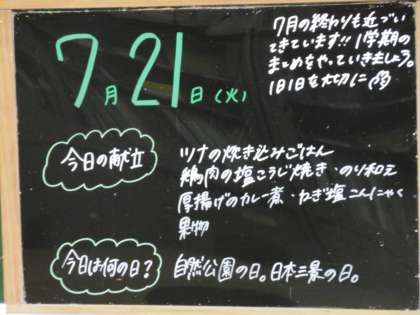 7月21日(火)
7月の終わりも近づい
てきています!!1学期の
まとめをやっていきましょう。
1日1日を大切に
今日の献立
ツナの炊き込みごはん
鶏肉の塩こうじ焼き・のり和え
厚揚げのカレー煮・ねぎ塩こんにゃく
果物
今日は何の日?
自然公園の日。日本三景の日。